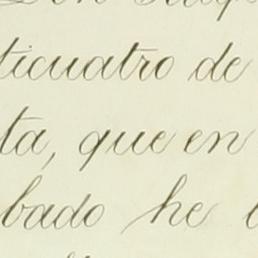 ticuatro de
ta, que en
bado he